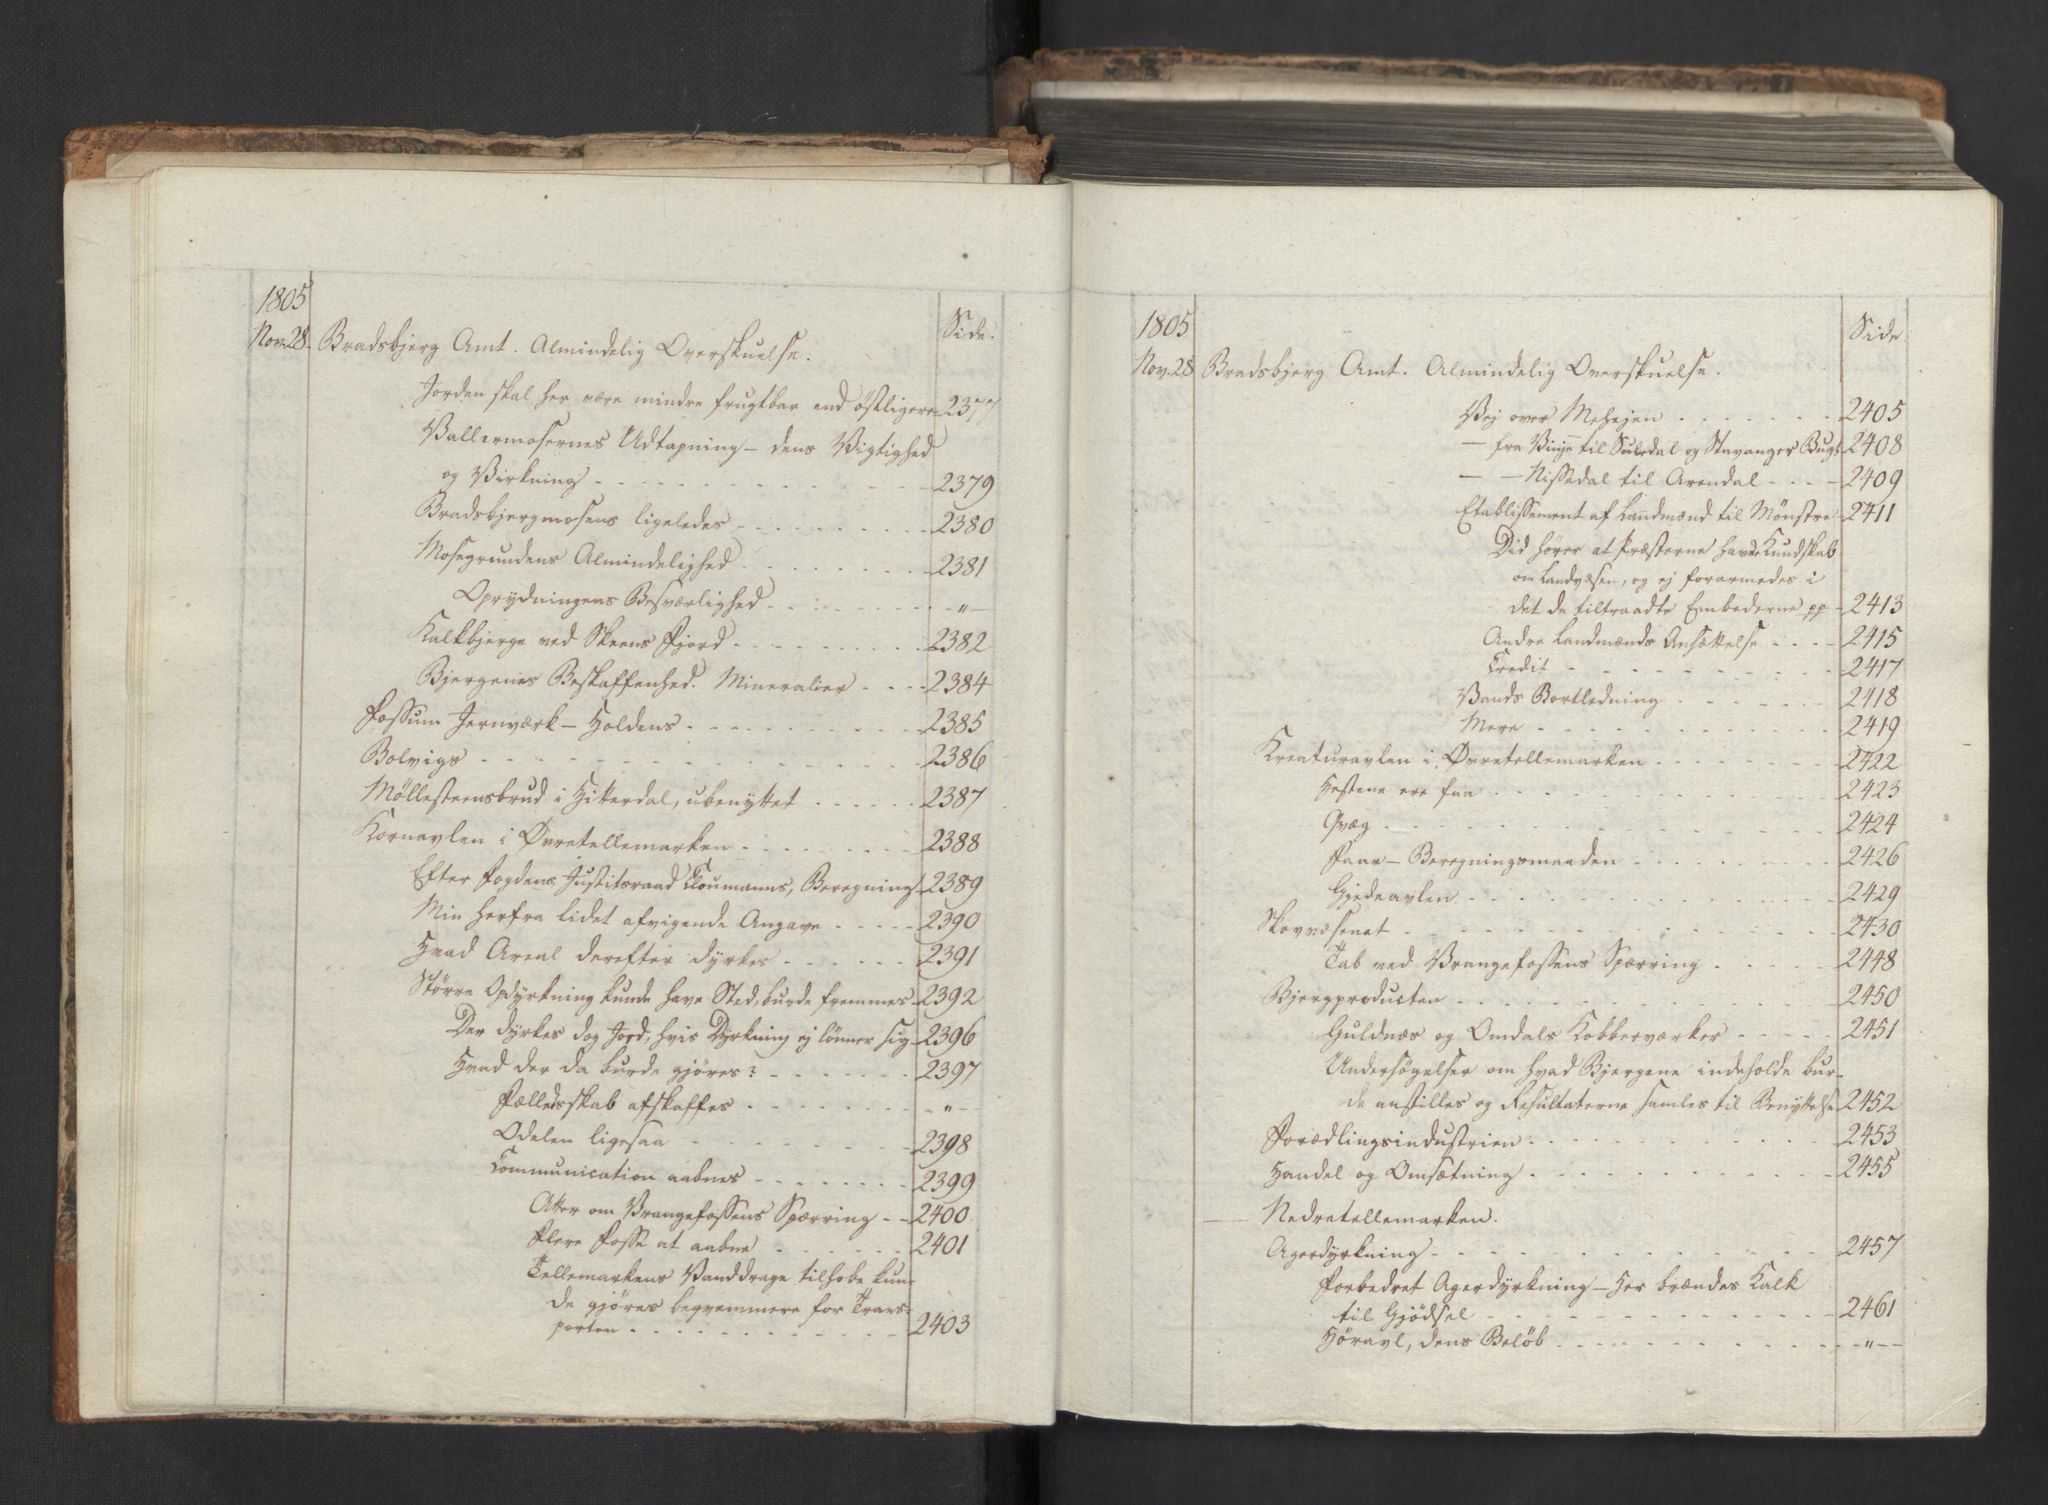 1805
Side.
Nov. 28. Bradsbjerg Amt. Almindelig Overskuelse.
Jorden skal her være mindre frugtbar end østligere 2377
Vallermosernes Udtapning - dens Vigtighed
og Virkning 2379
Bradsbjergmosens ligeledes 2380
Mosegrundens Almindelighed 2381
Oprydningens Besværlighed "
Kalkbjerge ved Skeens Fjord 2382
Bjergenes Beskaffenhed. Mineralier 2384
Fossum Jernværk - Holdens 2385
Bolvigs 2386
Möllesteensbrud i Hitterdal, ubenyttet 2387
Kornavlen i Øvretellemarken 2388
Efter Fogdens, Justitsraad Cloumanns, Beregning 2389
Min herfra lidet afvigende Angave 2390
Hvad Areal derefter dyrkes 2391
Större Opdyrkning kunde have Sted, burde fremmes 2392
Der dyrkes dog Jord, hvis Dyrkning ej lönner sig 2396
Hvad der da burde gjøres? 2397
Fælledsskab afskaffes "
Odelen ligesaa 2398
Communication aabnes 2399
Atter om Vrangefossens Spærring 2400
Flere Fosse at aabne 2401
Tellemarkens Vanddrage tilhobe kun-
de gjöres beqvemmere for Trans-
porten 2403
1805
Side
Nov. 28 Bradsbjerg Amt. Almindelig Overskuelse.
Vej over Mehejen 2405
- fra Vinje til Suledal og Stavanger Bugt 2408
- - Nissedal til Arendal 2409
Etablissement af Landmænd til Mönstre 2411
Did hörer at Præsterne havde Kundskab
om Landvæsen, og ej forarmedes i
det de tiltraadte Embederne pp 2413
Andre Landmænds Ansættelse 2415
Credit 2417
Vands Bortledning 2418
Mere 2419
Kreaturavlen i Øvretellemarken 2422
Hestene ere faa 2423
Qvæg 2424
Faar - Beregningsmaaden 2426
Gjedeavlen 2429
Skovvæsenet 2430
Tab ved Vrangefossens Spærring 2448
Bjergproducten 2450
Guldnæs og Omdals Kobberværker 2451
Undersögelser om hvad Bjergene indeholde bur-
de anstilles og Resultaterne samles til Benyttelse 2452
Forædlingsindustrien 2453
Handel og Omsætning 2455
Nedretellemarken.
Agerdyrkning 2457
Forbedret Agerdyrkning - Her brændes Kalk
til Gjödsel 2461
Höravl, dens Belöb "